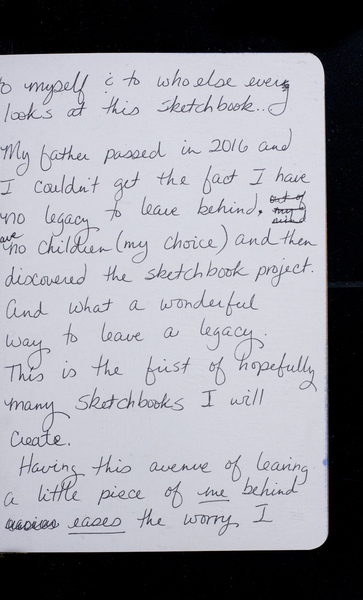 to myself & to who else every
looks at this sketchbook...
My father passed in 2016 and
I couldn't get the fact I have
no legacy to leave behind. out of
my
mind
ave no children (my choice) and then
discovered the sketchbook project.
And what a wonderful
way to leave a legacy.
This is the first of hopefully
many sketchbooks I will
create.
Having this avenue of leaving
a little piece of me behind
eases the worry I